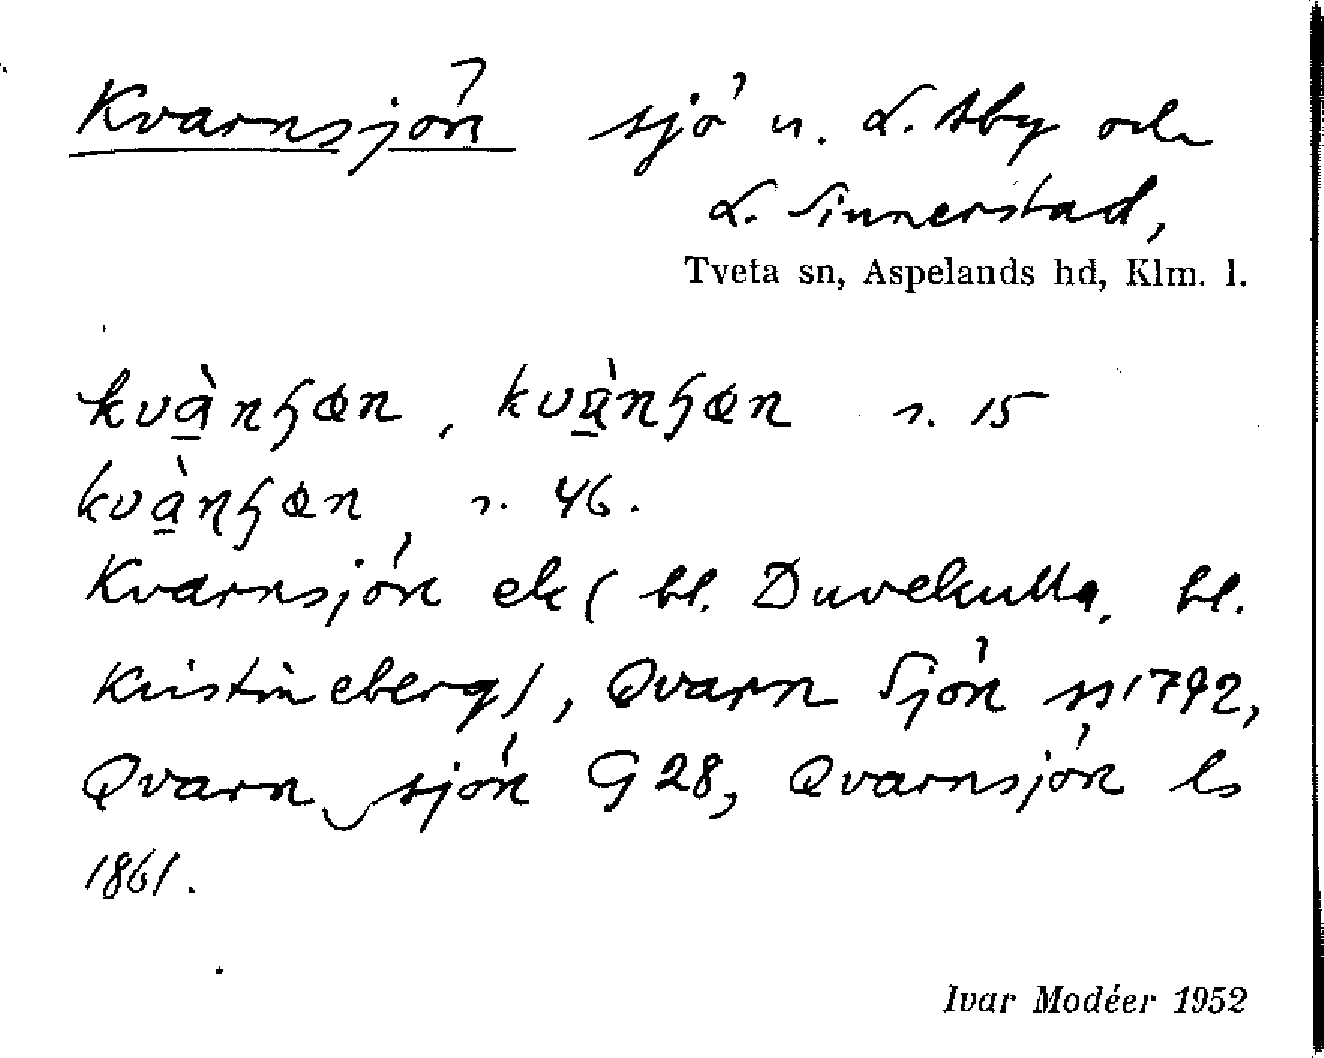 Kvarnsjön sjö u. L. Åby och
L. Sinnerstad,
Tveta sn, Aspelands hd, Klm. l.
kvànɧøn, kvànɧøn s. 15
kvàn̥ɧøn s. 46.
Kvarnsjön ek (bl. Duvekulla, bl.
Kristineberg), Qvarn Sjön ss 1792,
Qvarn sjön G 28, Qvarnsjön ls
1861.
Ivar Modéer 1952